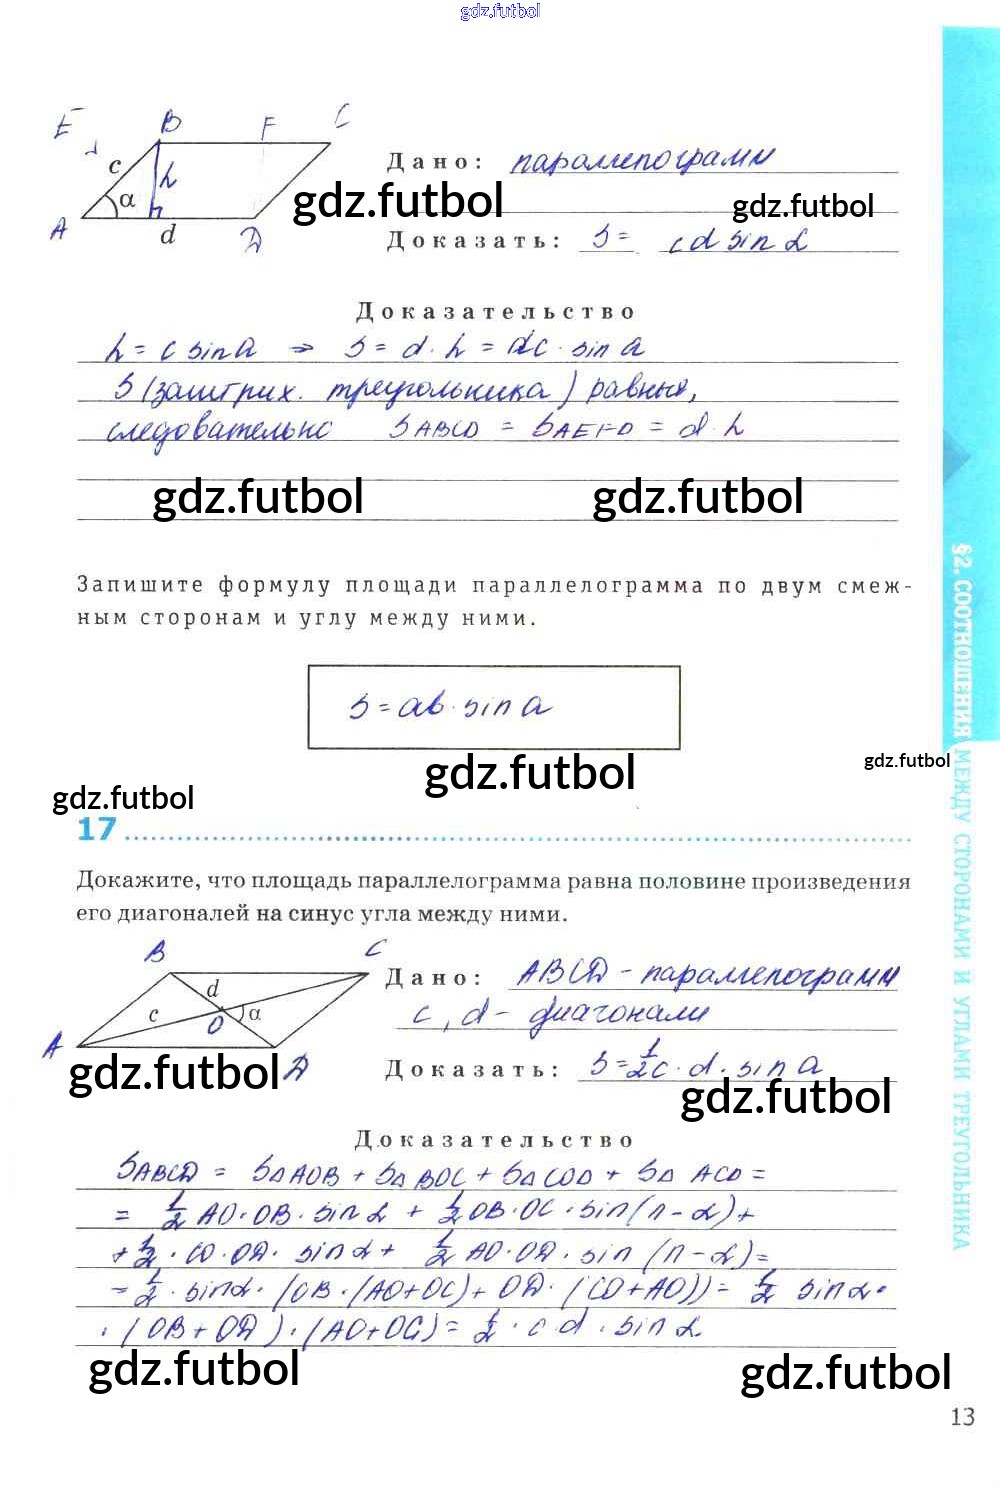 gdz.futbol
E B F C
c h α
A d D
Дано: параллелограмм
gdz.futbol gdz.futbol
Доказать: S = cd sin α
Доказательство
h = c sin α ⇒ S = d · h = dc · sin α
S (заштрих. треугольника) равные,
следовательно S ABCD = S AEFD = d · h
gdz.futbol gdz.futbol
Запишите формулу площади параллелограмма по двум смеж-
ным сторонам и углу между ними.
S = ab · sin α
gdz.futbol gdz.futbol
gdz.futbol
17
Докажите, что площадь параллелограмма равна половине произведения
его диагоналей на синус угла между ними.
B C
d
c O α
A D
Дано: ABCD - параллелограмм
c, d - диагонали
Доказать: S = 1/2 c · d · sin α
gdz.futbol gdz.futbol
Доказательство
S ABCD = S△AOB + S△BOC + S△COD + S△ACD =
= 1/2 AO · OB · sin α + 1/2 OB · OC · sin (π - α) +
+ 1/2 · CO · OD · sin α + 1/2 AO · OD · sin (π - α) =
= 1/2 · sin α · (OB · (AO + OC) + OD · (CO + AO)) = 1/2 sin α ·
· (OB + OD) · (AO + OC) = 1/2 · c d · sin α
gdz.futbol gdz.futbol
13
§2. СООТНОШЕНИЯ МЕЖДУ СТОРОНАМИ И УГЛАМИ ТРЕУГОЛЬНИКА